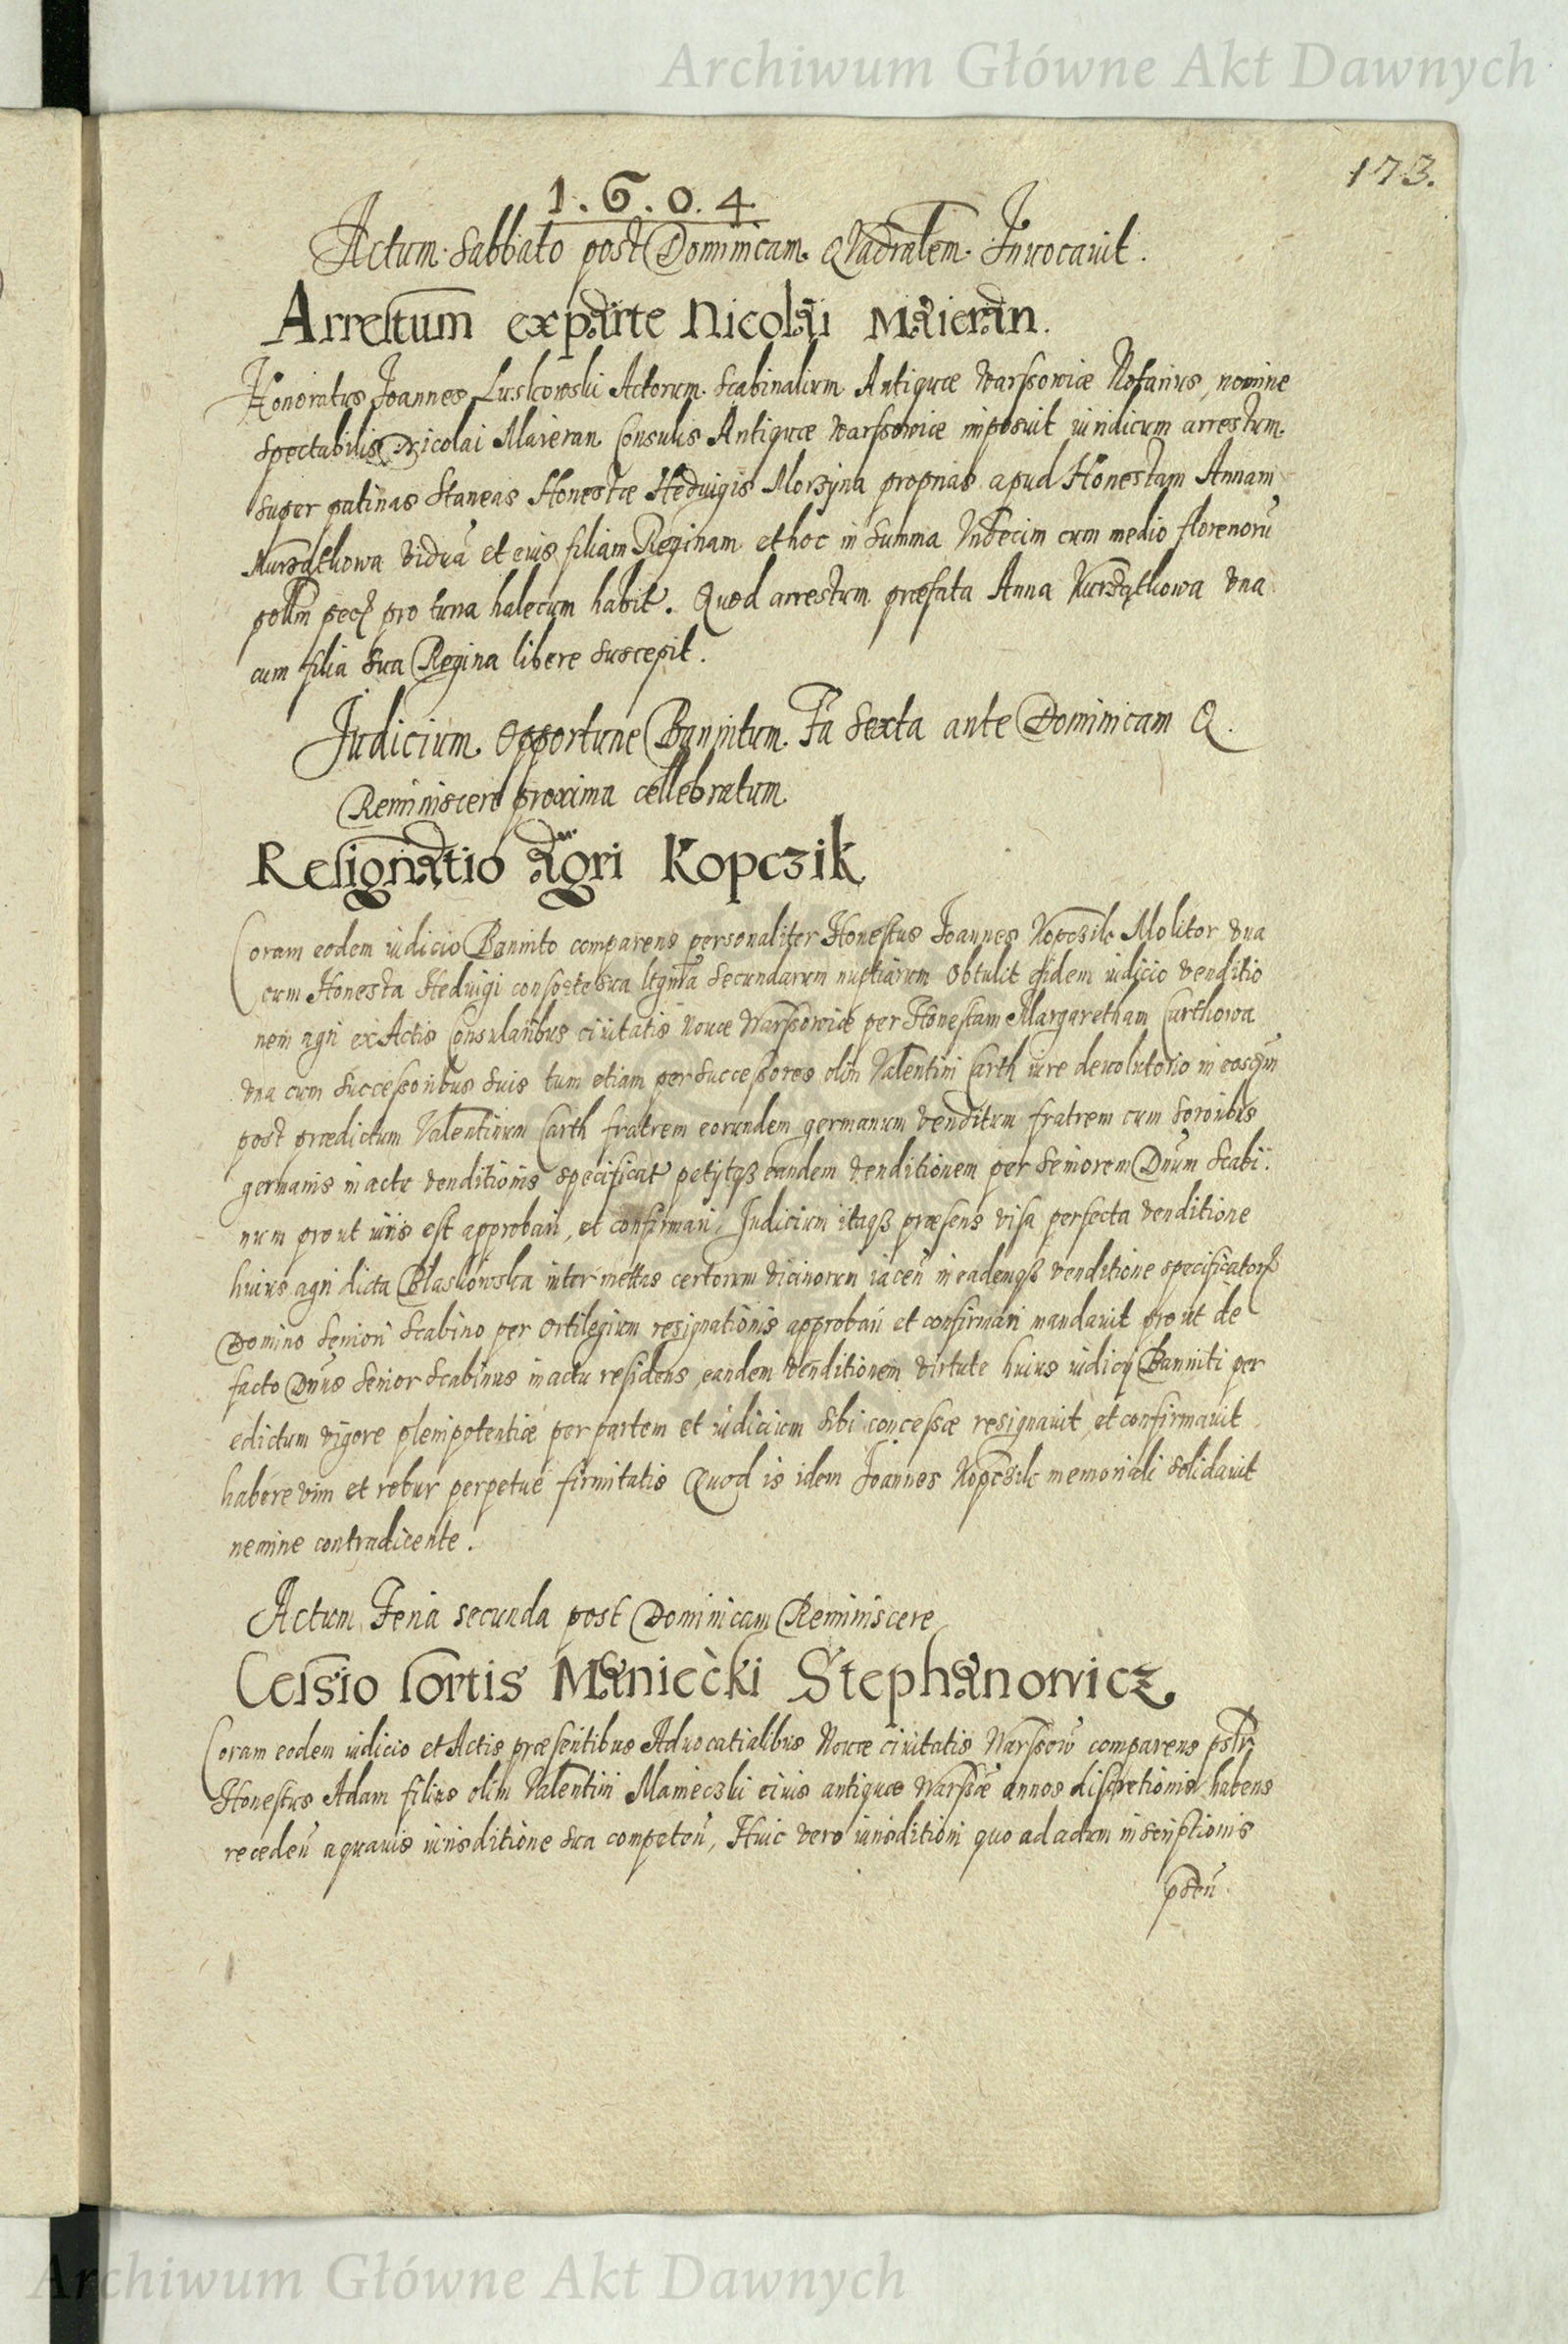 Archiwum Główne Akt Dawnych
173.
1.6.0.4
Actum Sabbato post Dominicam Qvadralem Invocavit.
Arrestum ex parte Nicolai Maieran.
Honoratus Joannes Luskowski Actorum Scabinalium Antiquæ Warssowiæ Notarius, nomine
Spectabilis Nicolai Maieran Consulis Antiquæ Warssowiæ imposuit iuridicum arrestum
super patinas staneas Honestæ Heduigis Morzyna proprias apud Honestam Annam
viduã et eius filiam Reginam et hoc in summa Vndecim cum medio florenorũ
pro tuna halecum habit. Quod arrestum præfata Anna vna
cum filia sua Regina libere suscepit.
Judicium opportune Bannitum Fa Sexta ante Dominicam Q.
Reminiscere proxima cellebratum
Resignatio agri Kopczik
Coram eodem iudicio Bannito comparens personaliter Honestus Joannes Kopczik Molitor vna
cum Honesta Heduigi consorte sua secundarum nuptiarum obtulit eidem iudicio venditio
nem agri ex Actis Consularibus ciuitatis Nouæ Warssowiæ per Honestam Margaretham Curthowa
vna cum successoribus suis tum etiam per successores olim Valentini Carth iure deuolutorio in
post prædictum Valentinum Carth fratrem eorundem germanum venditum fratrem cum sororibus
germanis in actu venditionis specificat petijtqȝ eandem venditionem per seniorem Dnum Scabi:
num prout iuris est approbari, et confirmari, Judicium itaqȝ præsens visa perfecta venditione
huius agri dicta Blaskowska inter mettas certorum vicinorum iaceñ in eademqȝ venditione specificatorꝝ
Domino Seniori Scabino per ortilegium resignationis approbari et confirmari mandauit prout de
facto Dnus Senior Scabinus in actu residens, eandem venditionem virtute huius iudicij Banniti per
edictum vigore plenipotentiæ per partem et iudicium sibi concessæ resignauit, et confirmauit
habere vim et robur perpetuæ firmitatis Quod is idem Joannes Kopczik memoriali solidauit
nemine contradicente.
Actum Feria secunda post Dominicam Reminiscere
Cessio sortis Maniecki Stephanowicz
Coram eodem iudicio et Actis præsentibus Aduocatialibus Nouæ ciuitatis Warssow comparens pslr
Honestus Adam filius olim Valentini Manieczki ciuis antiquæ Warssæ annos discretionis habens
recedeñ a quauis iurisditione sua competeñ, Huic vero iurisditioni quo ad actum inscriptionis
pdeñ
Archiwum Główne Akt Dawnych